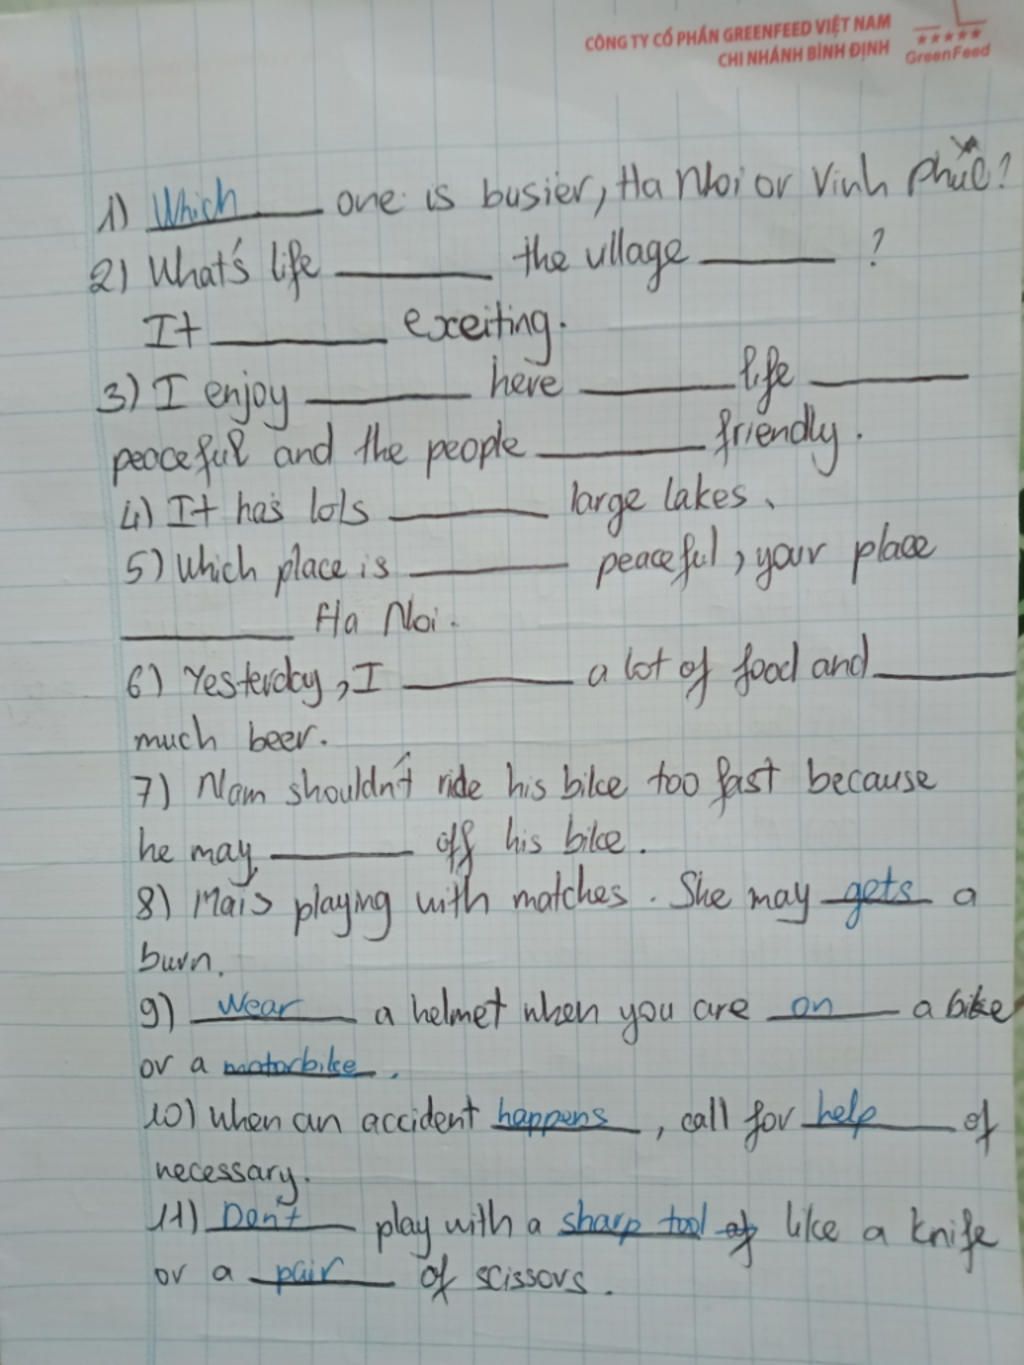 CÔNG TY CỔ PHẦN GREENFEED VIỆT NAM
CHI NHÁNH BÌNH ĐỊNH
GreenFeed
1) Which one is busier, Ha Noi or Vinh Phúc?
2) What's life ______ the village ______ ?
It ______ exceiting.
3) I enjoy ______ here ______ life ______
peaceful and the people ______ friendly.
4) It has lots ______ large lakes.
5) Which place is ______ peaceful, your place
______ Ha Noi.
6) Yesterday, I ______ a lot of food and ______
much beer.
7) Nam shouldn't ride his bike too fast because
he may ______ off his bike.
8) Mai's playing with matches. She may gets a
burn.
9) Wear a helmet when you are on a bike
or a motorbike.
10) When an accident happens, call for help of
necessary.
11) Don't play with a sharp tool like a knife
or a pair of scissors.